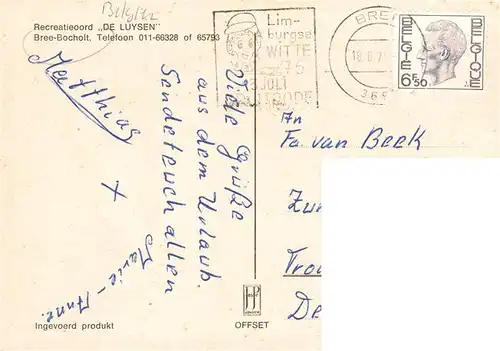 Belgien
Recreatieoord "DE LUYSEN"
Bree-Bocholt, Telefoon 011-66328 of 65793
Lim-
burgse
WITTE
75
3 JULI
BREE
18.6.7
BELGIE
BELGIQUE
6F50
Viele Grüße
aus dem Urlaub.
Sendet euch allen
Matthias
+
Marie-Anne.
An
Fa. van Beek
Ingevoerd produkt
OFFSET